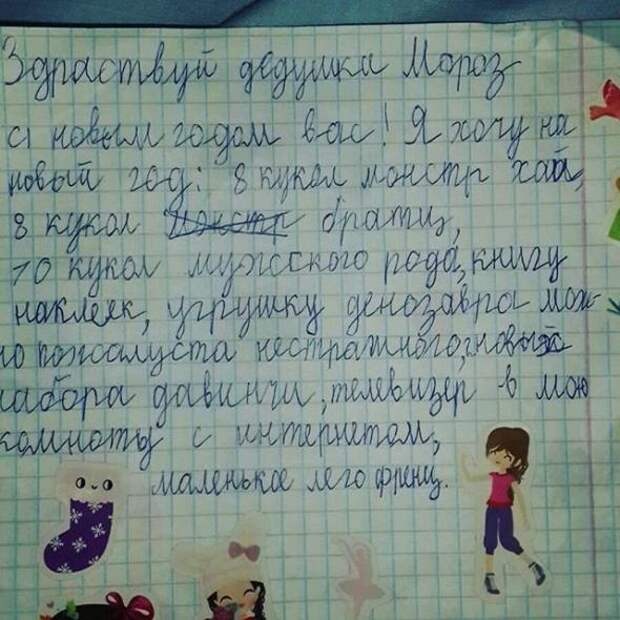 Здраствуй дедушка Мороз
с новым годом вас! Я хочу на
новый год: 8 кукол монстр хай,
8 кукол монстр братц,
10 кукол мужсского рода, книгу
наклеяк, угрушку денозавра мож-
но пожалуста нестражного, новых
набора давинчи, телевизер в мою
комноты с интернетом,
маленькое лего френц.